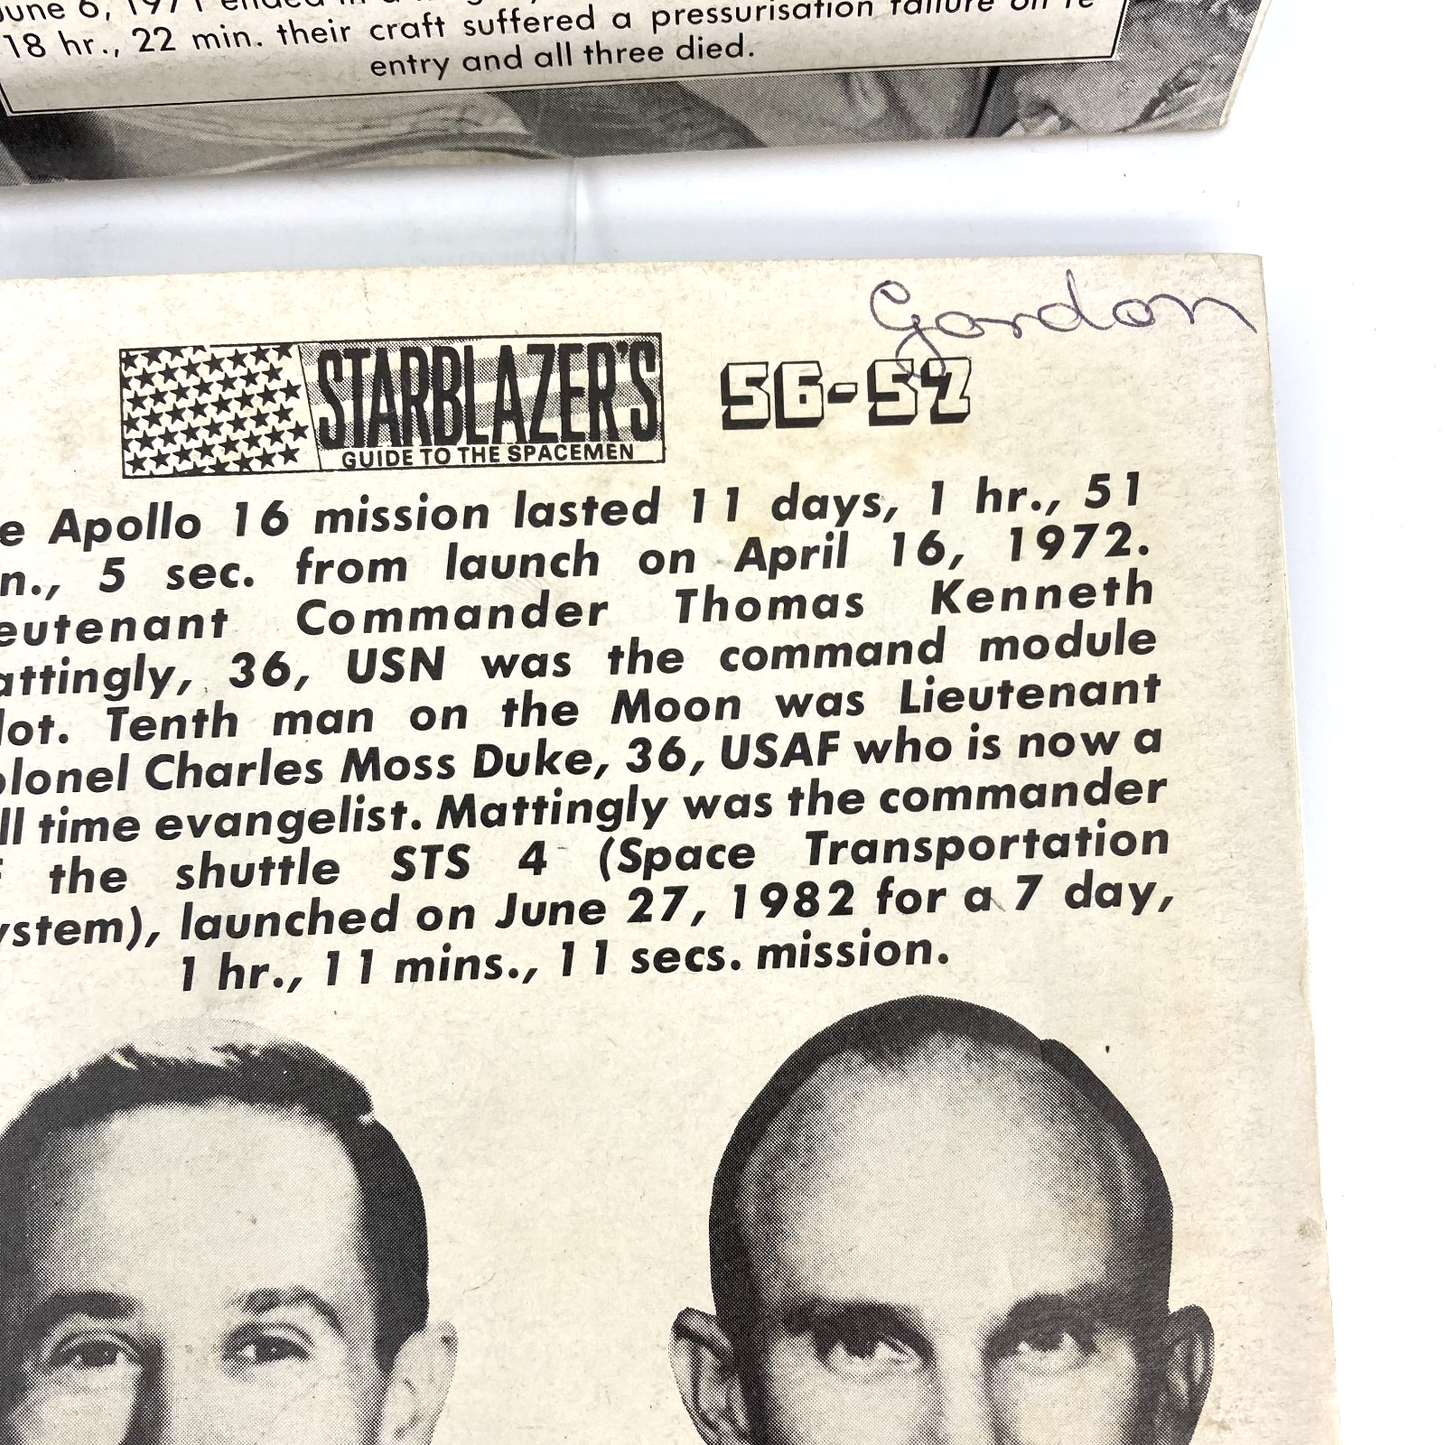 June 6, 1971 ended in a
18 hr., 22 min. their craft suffered a pressurisation failure on re
entry and all three died.
Gordon
STARBLAZER'S
GUIDE TO THE SPACEMEN
56-57
e Apollo 16 mission lasted 11 days, 1 hr., 51
n., 5 sec. from launch on April 16, 1972.
eutenant Commander Thomas Kenneth
attingly, 36, USN was the command module
lot. Tenth man on the Moon was Lieutenant
olonel Charles Moss Duke, 36, USAF who is now a
ll time evangelist. Mattingly was the commander
f the shuttle STS 4 (Space Transportation
ystem), launched on June 27, 1982 for a 7 day,
1 hr., 11 mins., 11 secs. mission.